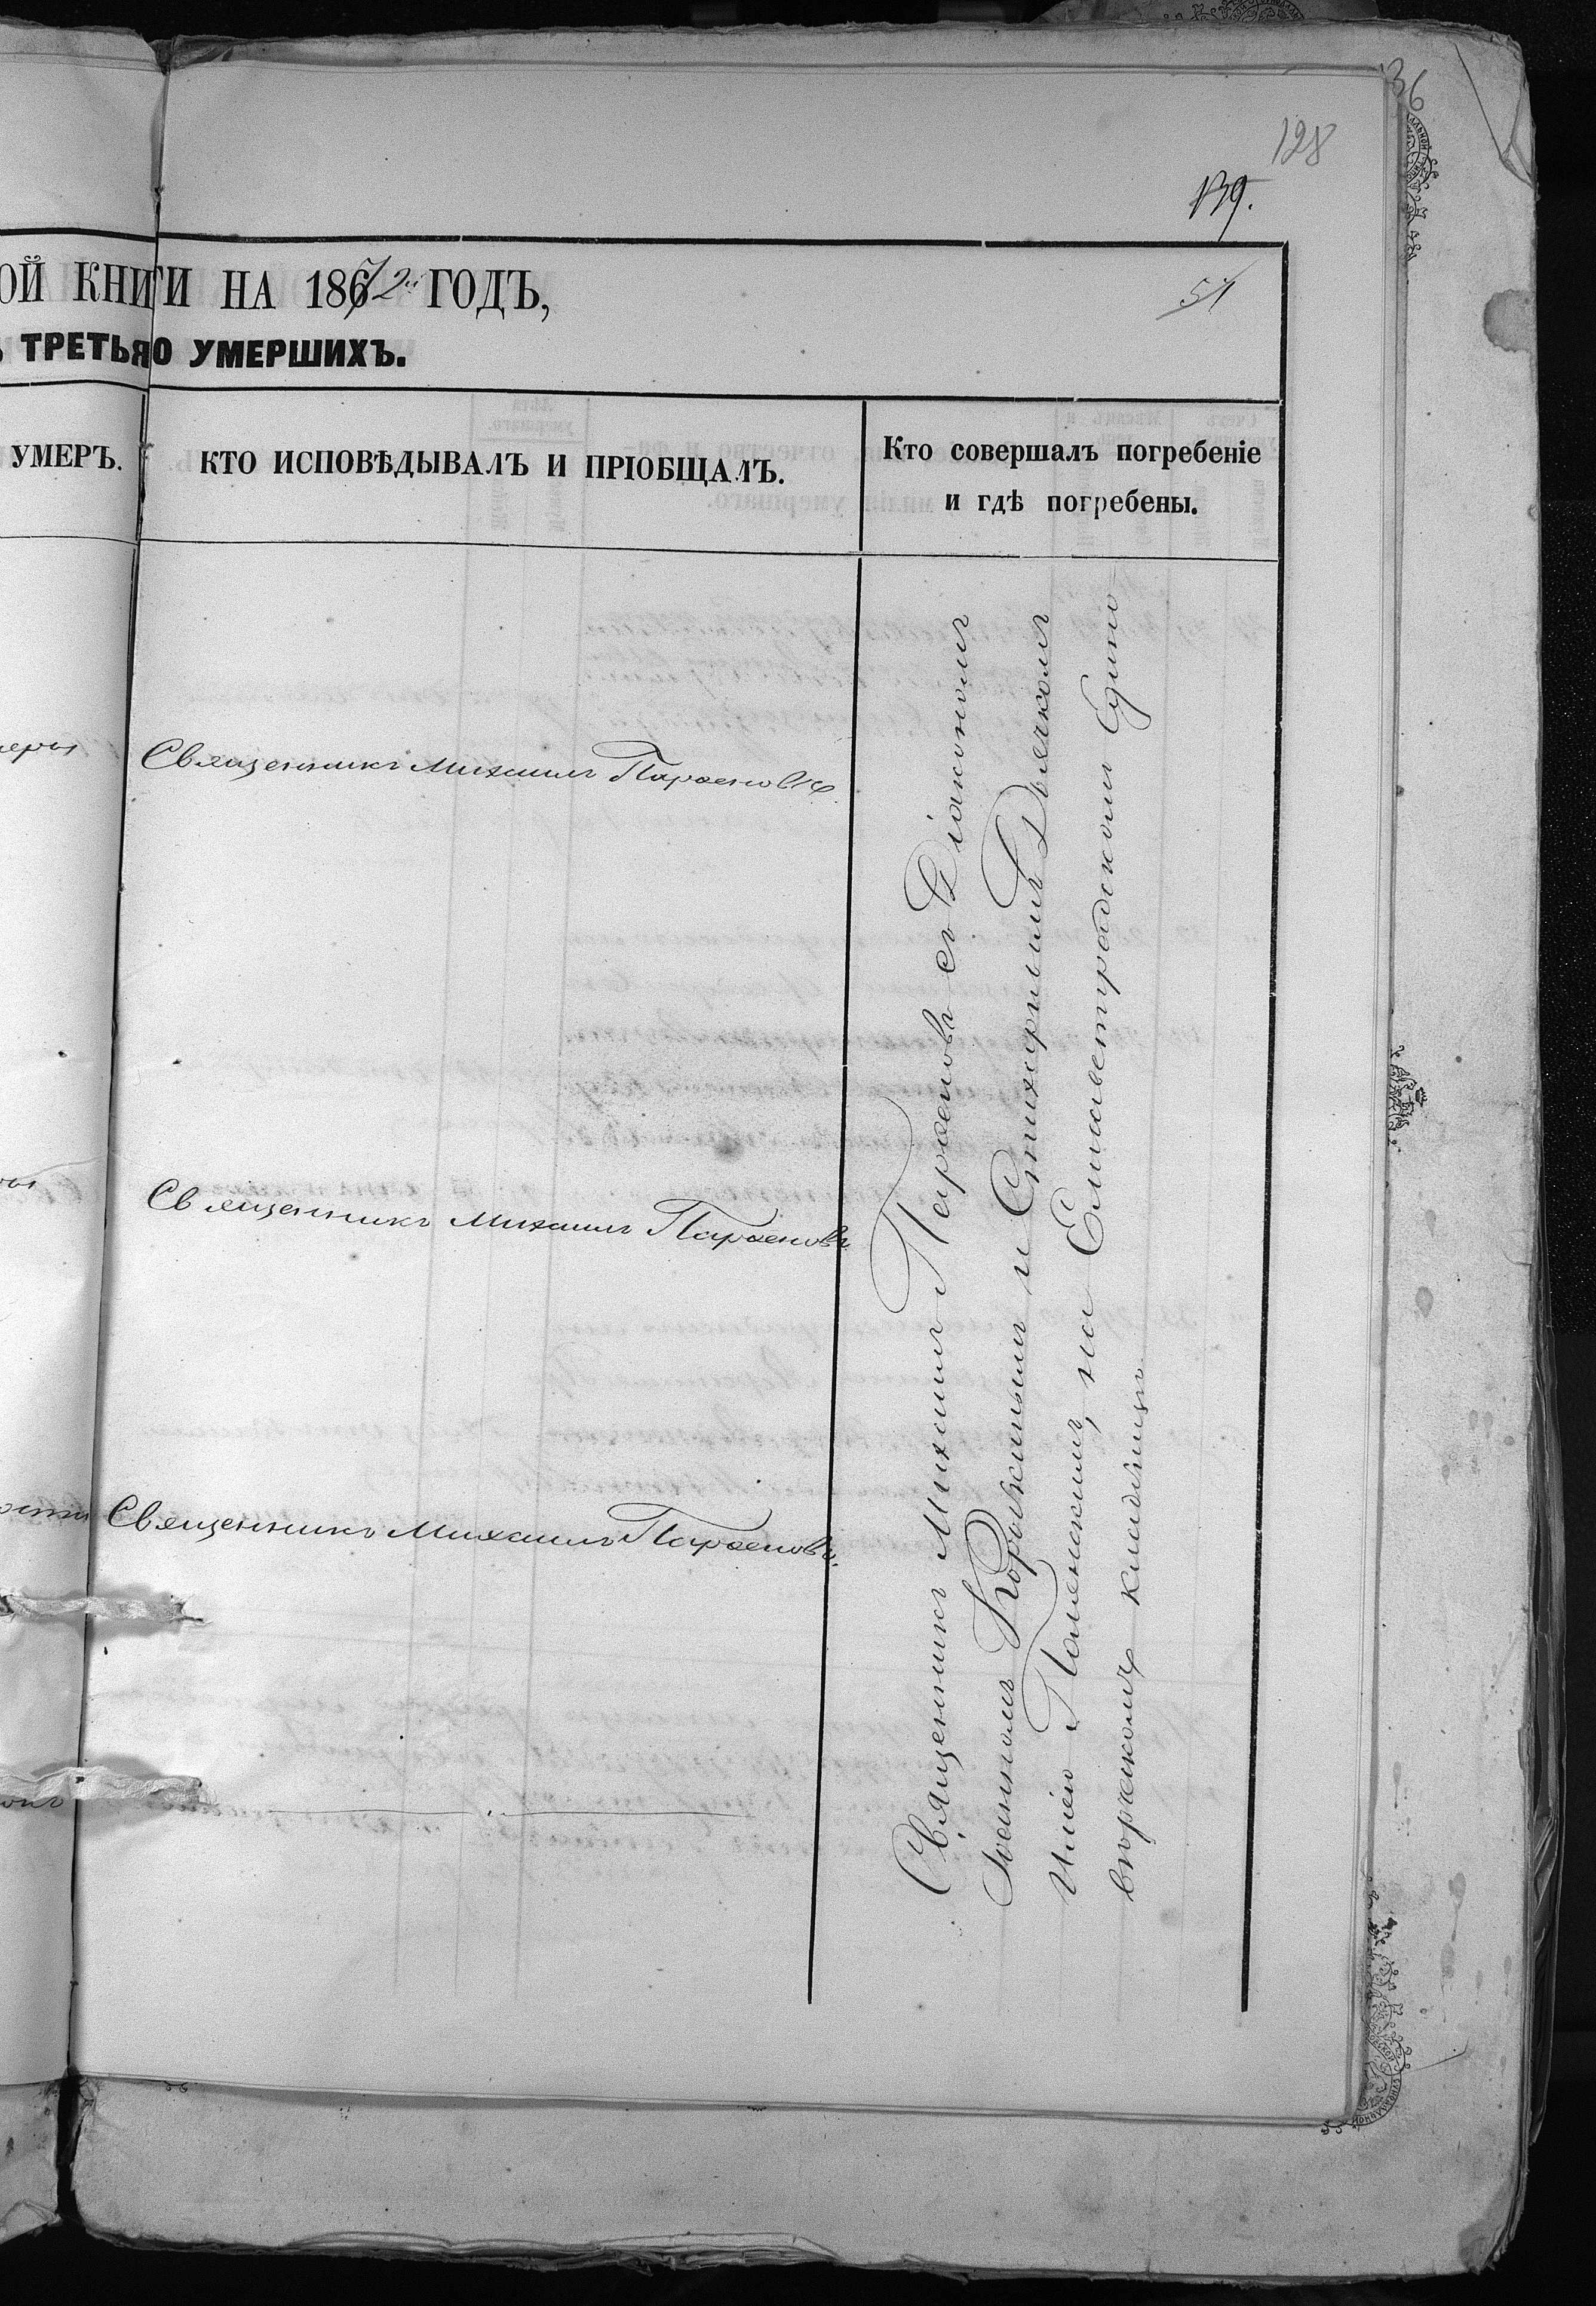 36
128
139.
ОЙ КНИГИ НА 1872 ГОДЪ,
51
ТРЕТЬЯ О УМЕРШИХЪ.
УМЕРЪ.
КТО ИСПОВѢДЫВАЛЪ И ПРІОБЩАЛЪ.
Кто совершалъ погребеніе
и гдѣ погребены.
Священникъ Михаилъ Парѳеновъ
Священникъ Михаилъ Парѳеновъ
Священникъ Михаилъ Парѳеновъ.
Священникъ Михаилъ Парѳеновъ съ Діакономъ
Іоанномъ и Стихарнымъ Дьячкомъ
на Елисаветградскомъ Едино
вѣрческомъ кладбищѣ